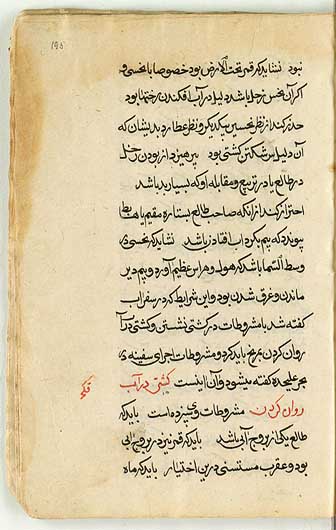 ۱۹۵
نبود نشاید که قمر تحت الارض بود خصوصا با نحسی و
اگر آن نحس زحل باشد دلیل در آب افکندن رختها بود
حذر کند از نظر نحسین بیکدیگر و نظر عطارد بدیشان که
آن دلیل شکستن کشتی بود پرهیزد از بودن زحل
در طالع یا در تربیع و مقابله او که بسیار بد باشد
احتراز کند از آنکه صاحب طالع بستاره مقیم یا هابط
پیوندد که بیم بگرداب افتادن باشد نشاید که نحسی در
وسط السما باشد که هول و هراس عظیم آورد و بیم دیر
ماندن و غرق شدن بود و این شرایط که در سفر آب
گفته شد با مشروطات در کشتی نشستن و کشتی در آب
روان کردن بمزج باید کرد و مشروطات اجرای سفینه در
بحر علیحده گفته میشود و آن اینست کشتی در آب
روان کردن مشروطات وی سیزده است باید که
طالع یکی از بروج آبی باشد باید که قمر نیز در بروج آبی
بود و عقرب مستثنی درین اختیار باید که ماه